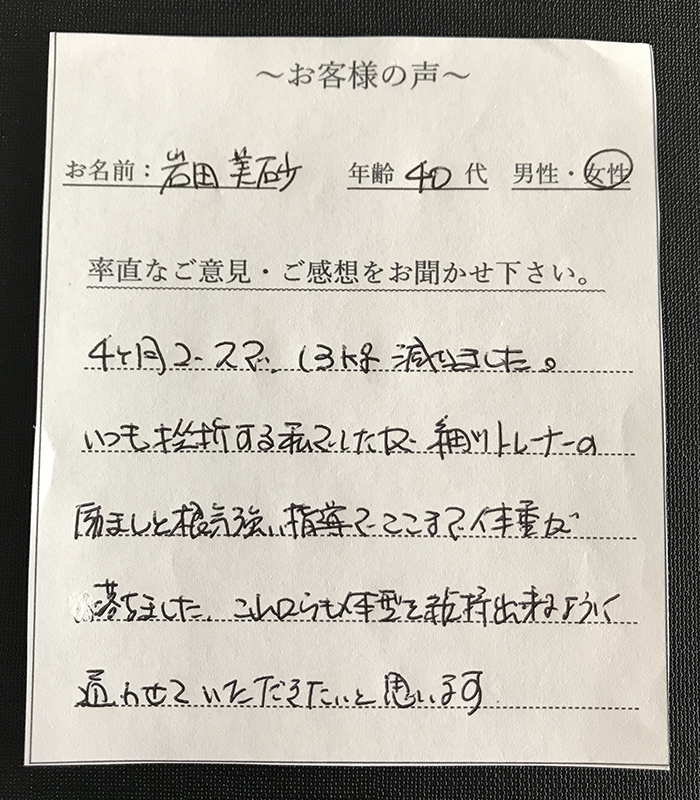 ～お客様の声～
お名前：岩田 美砂 年齢 40 代 男性・女性
率直なご意見・ご感想をお聞かせ下さい。
4ヶ月コースで、13kg 減りました。
いつも挫折する私でしたが 細川トレーナーの
励ましと根気強い指導でここまで体重が
落ちました、これからも体型を維持出来るように
通わせていただきたいと思います